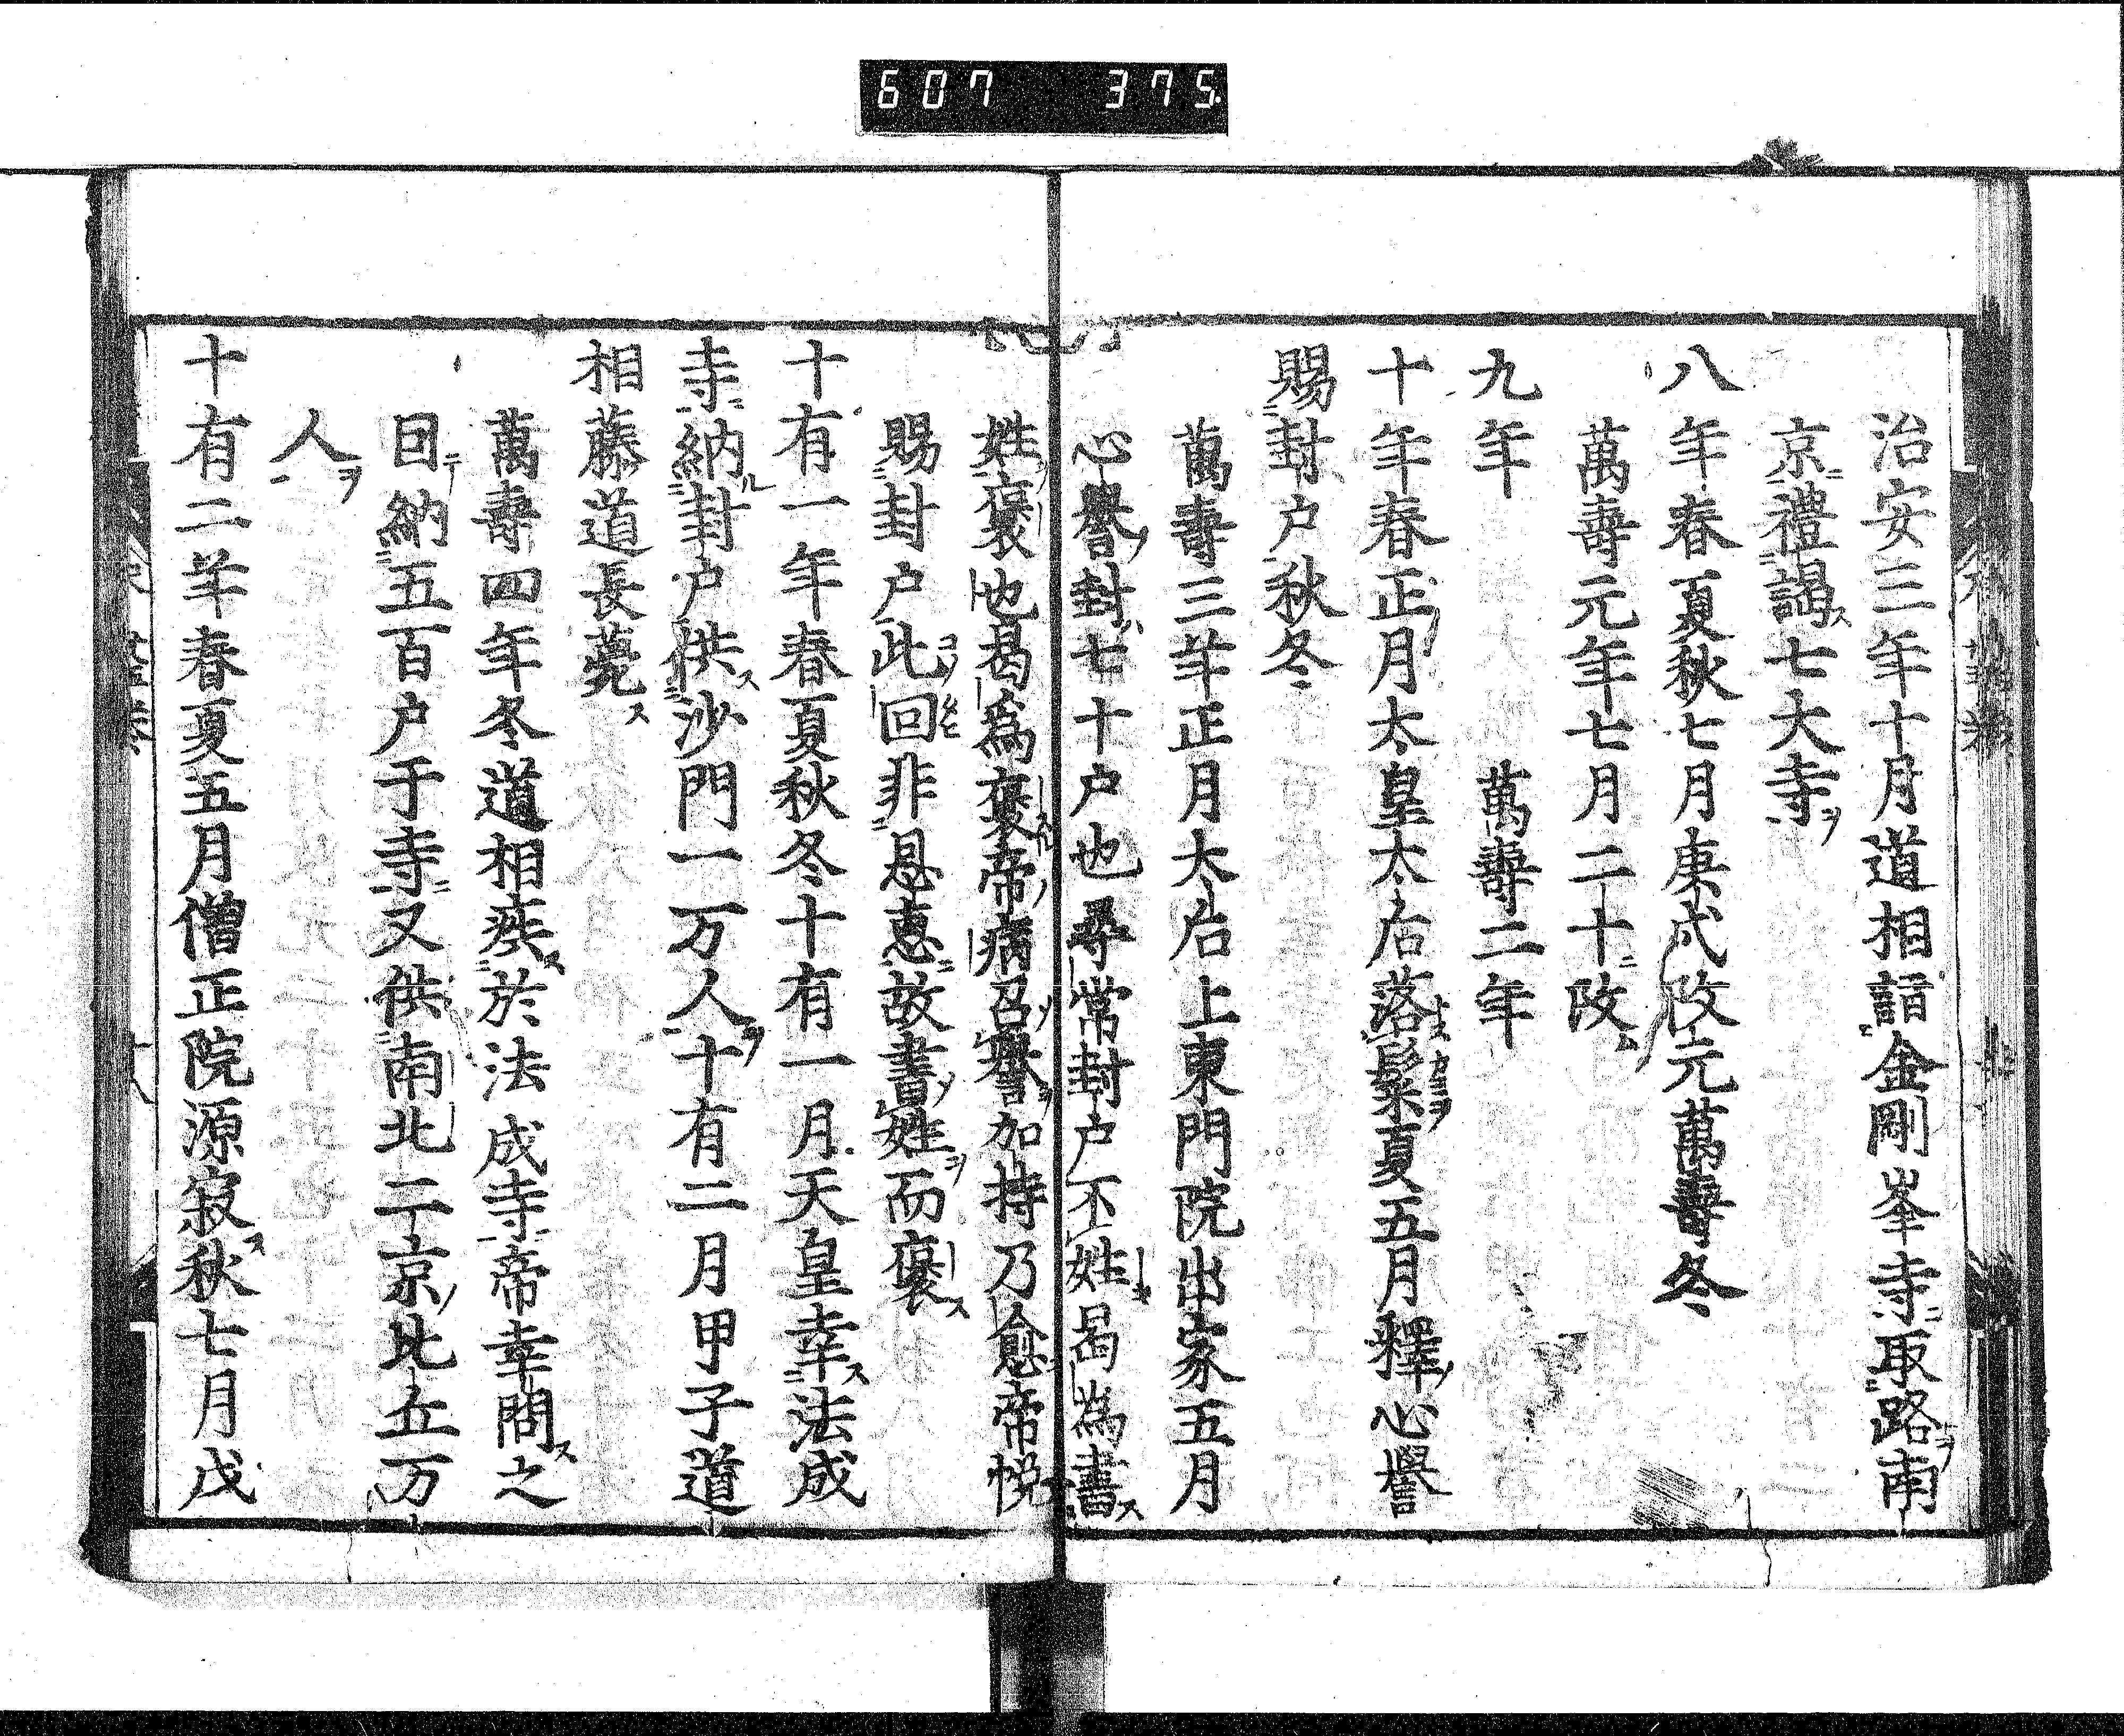 607 375
治安三年十月道相詣金剛峯寺取路南
京禮謁七大寺
八年春夏秋七月庚戌改元萬壽冬
萬壽元年七月二十改
九年 萬壽二年
十年春正月太皇太后落髮夏五月釋心譽
賜封户秋冬
萬壽三年正月大后上東門院出家五月
心譽封七十户也尋常封户不姓曷為書
姓褒也曷爲褒帝病召譽加持乃愈帝悦
賜封户此回非恩惠故書姓而褒
十有一年春夏秋冬十有一月天皇幸法成
寺納封户供沙門一万人十有二月甲子道
相藤道長薨
萬壽四年冬道相疾於法成寺帝幸問之
日納五百户于寺又供南北二京比丘万
人
十有二年春夏五月僧正院源寂秋七月戊